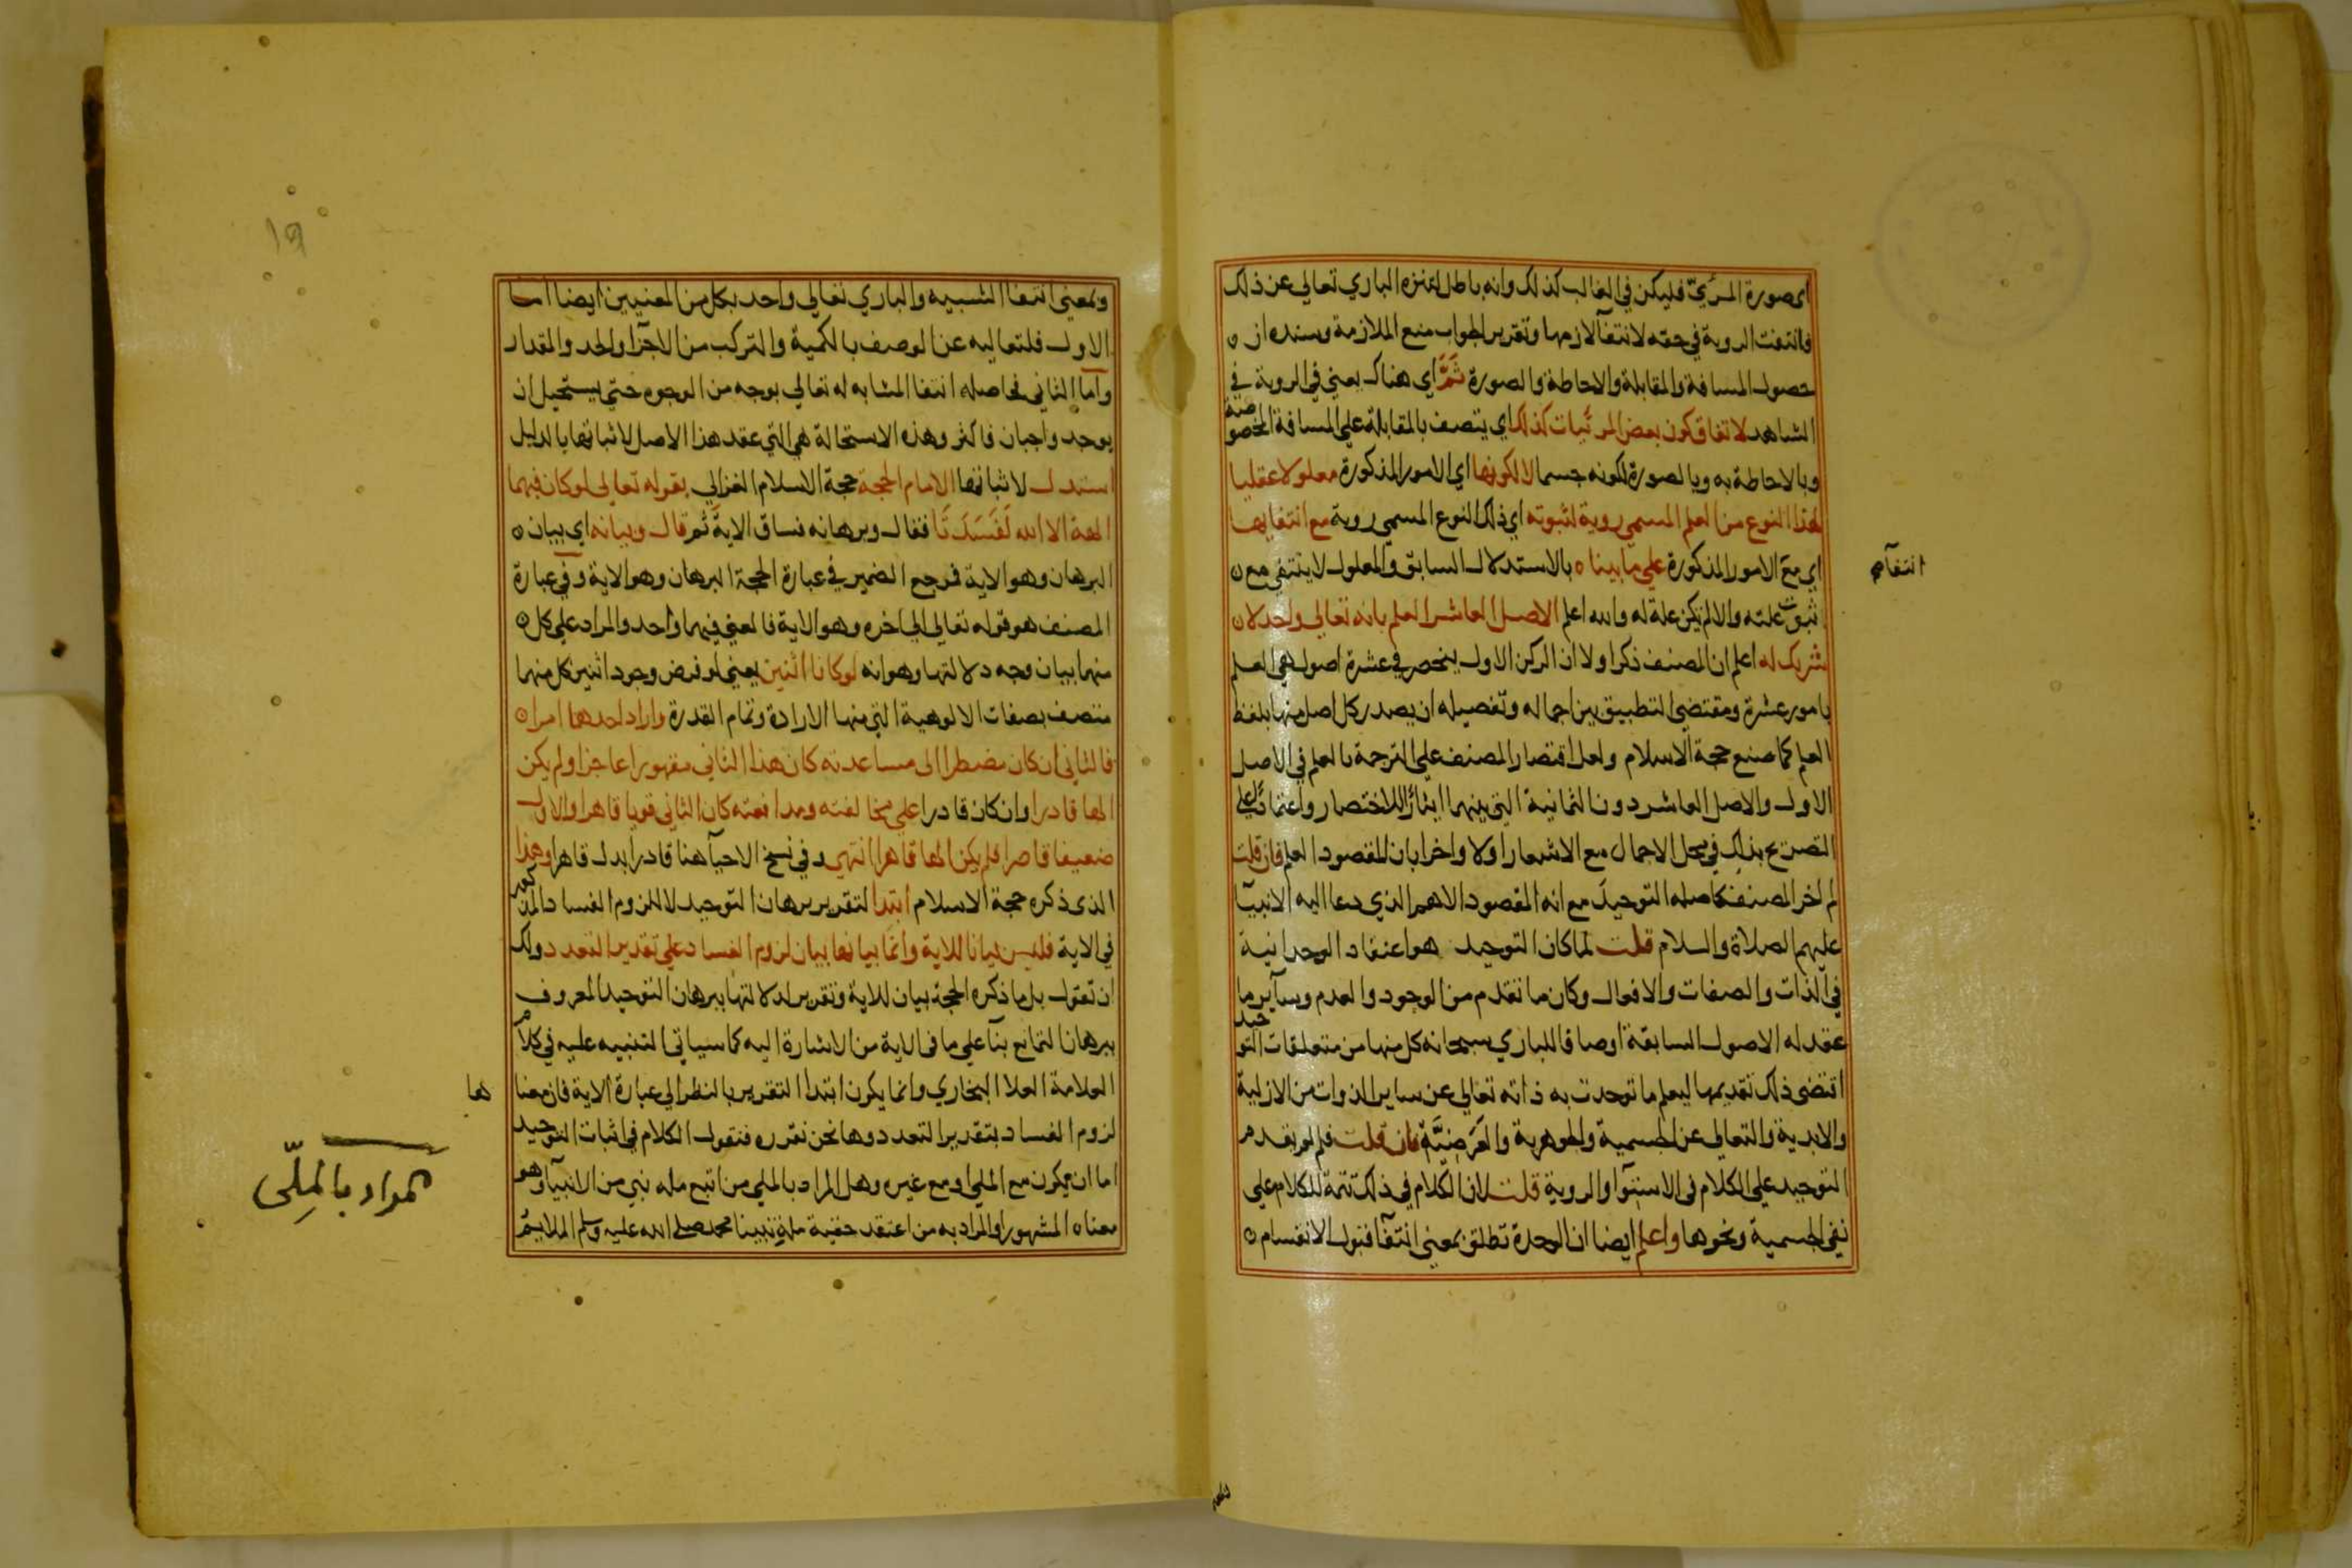 اى صورة المرئيّ فليكن في الغالب كذلك وانه باطل لتنزه الباري تعالي عن ذلك
فانتفت الروية في حقه لانتفآ لازمها وتقرير الجواب منع الملازمة وسنده ان
حصول المسافة والمقابلة والاحاطة والصورة ثَمَّ اي هناك يعني في الروية في
الشاهد لاتفاق كون بعض المرئيات كذلك اي يتصف بالمقابلة علي المسافة المخصوصة
وبالاحاطة به وبالصورة لكونه جسما لا لكونها اي الامور المذكورة معلولا عقليا
لهذا النوع من العلم المسمي روية لثبوته اي ذلك النوع المسمي روية مع انتفايها
اي مع الامور المذكورة علي ما بيناه بالاستدلال السابق والمعلول لا ينتفي مع
انتفآء
ثبوت علته والا لم يكن علة له والله اعلم الاصل العاشر العلم بانه تعالي واحد لا
شريك له اعلم ان المصنف ذكر اولا ان الركن الاول ينحصر في عشرة اصول هي العلم
بامور عشرة ومقتضي التطبيق بين اجماله وتفصيله ان يصدر كل اصل منها بلفظ
العلم كما صنع حجة الاسلام ولعل اقتصار المصنف علي الترجمة بالعلم في الاصل
الاول والاصل العاشر دون الثمانية التي بينهما ايثارًا للاختصار واعتمادًا علي
التصريح بذلك في محل الاجمال مع الاشعار اولا واخرا بان المقصود العلم فان قلت
لم اخر المصنف كاصله التوحيد مع انه المقصود الاهم الذي دعا اليه الانبيآ
عليهم الصلاة والسلام قلت لما كان التوحيد هو اعتقاد الوحدانية
في الذات والصفات والافعال وكان ما تقدم من الوجود والعدم وسآير ما
عقد له الاصول السابقة اوصافا للباري سبحانه كل منها من متعلقات التوحيد
اقتضى ذلك تقديمها ليعلم ما توحدت به ذاته تعالي عن ساير الذوات من الازلية
والابدية والتعالي عن الجسمية والجوهرية والعَرَضِيَّة فان قلت فلم لم يقدم
التوحيد علي الكلام في الاستوآ والروية قلت لان الكلام في ذلك تتمة للكلام علي
نفي الجسمية ونحوها واعلم ايضا ان الوحدة تطلق بمعني انتفآ قبول الانقسام
١٩
وبمعني انتفا الشبيه والباري تعالي واحد بكل من المعنيين ايضا اما
الاول فلتعاليه عن الوصف بالكمية والتركب من الاجزآ والحد والمقدار
واما الثاني فحاصله انتفا المشابه له تعالي بوجه من الوجوه حتي يستحيل ان
يوجد واجبان فاكثر وهذه الاستحالة هي التي عقد هذا الاصل لاثباتها بالدليل
استدل لاثباتها الامام الحجة حجة الاسلام الغزالي بقوله تعالي لو كان فيهما
الهة الا الله لَفَسَدَتَا فقال وبرهانه فساق الاية ثم قال وبيانه اي بيان
البرهان وهو الاية فرجع الضمير في عبارة الحجة البرهان وهو الاية وفي عبارة
المصنف هو قوله تعالي الي اخره وهو الاية فالمعني فيهما واحد والمراد علي كل
منهما بيان وجه دلالتها وهو انه لو كانا اثنين يعني لو فرض وجود اثنين كل منهما
متصف بصفات الالوهية التي منها الارادة وتمام القدرة واراد احدهما امرا
فالثاني ان كان مضطرا الى مساعدته كان هذا الثاني مقهورا عاجزا ولم يكن
الها قادرا وان كان قادرا علي مخالفته ومدافعته كان الثاني قويا قاهرا والاول
ضعيفا قاصرا فلم يكن الها قاهرا انتهي وفي نسخ الاحيآ هنا قادرا بدل قاهرا وهذا
الذى ذكره حجة الاسلام ابتدا لتقرير برهان التوحيد لا للزوم الفساد المذكور
في الاية فليس بيانا للاية وانما بيانها بيان لزوم الفساد علي تقدير التعدد ولك
ان تقول بل ما ذكره الحجة بيان للاية وتقرير لدلالتها ببرهان التوحيد المعروف
ببرهان التمانع بنآ علي ما في الاية من الاشارة اليه كما سياتي التنبيه عليه في كلام
العلامة العلا البخاري وانما يكون ابتدا التقرير بالنظر الي عبارة الاية فان معنا
ها
لزوم الفساد بتقدير التعدد وها نحن نقرره فنقول الكلام في اثبات التوحيد
اما ان يكون مع الملي او مع غيره وهل المراد بالملي من اتبع مله نبي من الانبيآ وهو
معناه المشهور او المراد به من اعتقد حقية ملة نبينا محمد صلي الله عليه وسلم الملايم
المراد بالمِلّى